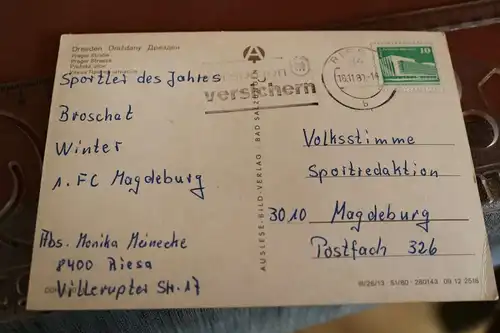 Dresden Drážďany Дрезден
Prager Straße
Sportler des Jahres
Broschat
Winter
1. FC Magdeburg
Abs. Monika Meinecke
8400 Riesa
Villerupter Str. 17
versichern
10
AUSLESE-BILD-VERLAG · BAD SALZUNGEN
Volksstimme
Sportredaktion
3010 Magdeburg
Postfach 326
III/26/13 SI/80 · 280143 09 12 2516